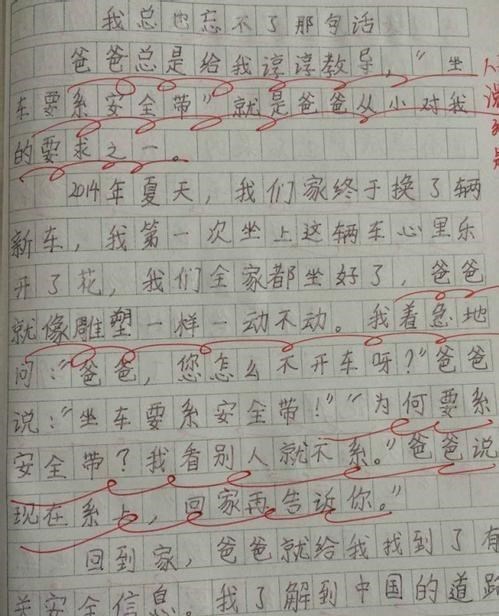 我总也忘不了那句话
爸爸总是给我谆谆教导，“坐
车要系安全带”就是爸爸从小对我
的要求之一。
2014年夏天，我们家终于换了辆
新车，我第一次坐上这辆车心里乐
开了花，我们全家都坐好了，爸爸
就像雕塑一样一动不动。我着急地
问：“爸爸，您怎么不开车呀？”爸爸
说：“坐车要系安全带！”“为何要系
安全带？我看别人就不系。”爸爸说
现在系上，回家再告诉你。”
回到家，爸爸就给我找到了有
关安全信息。我了解到中国的道路